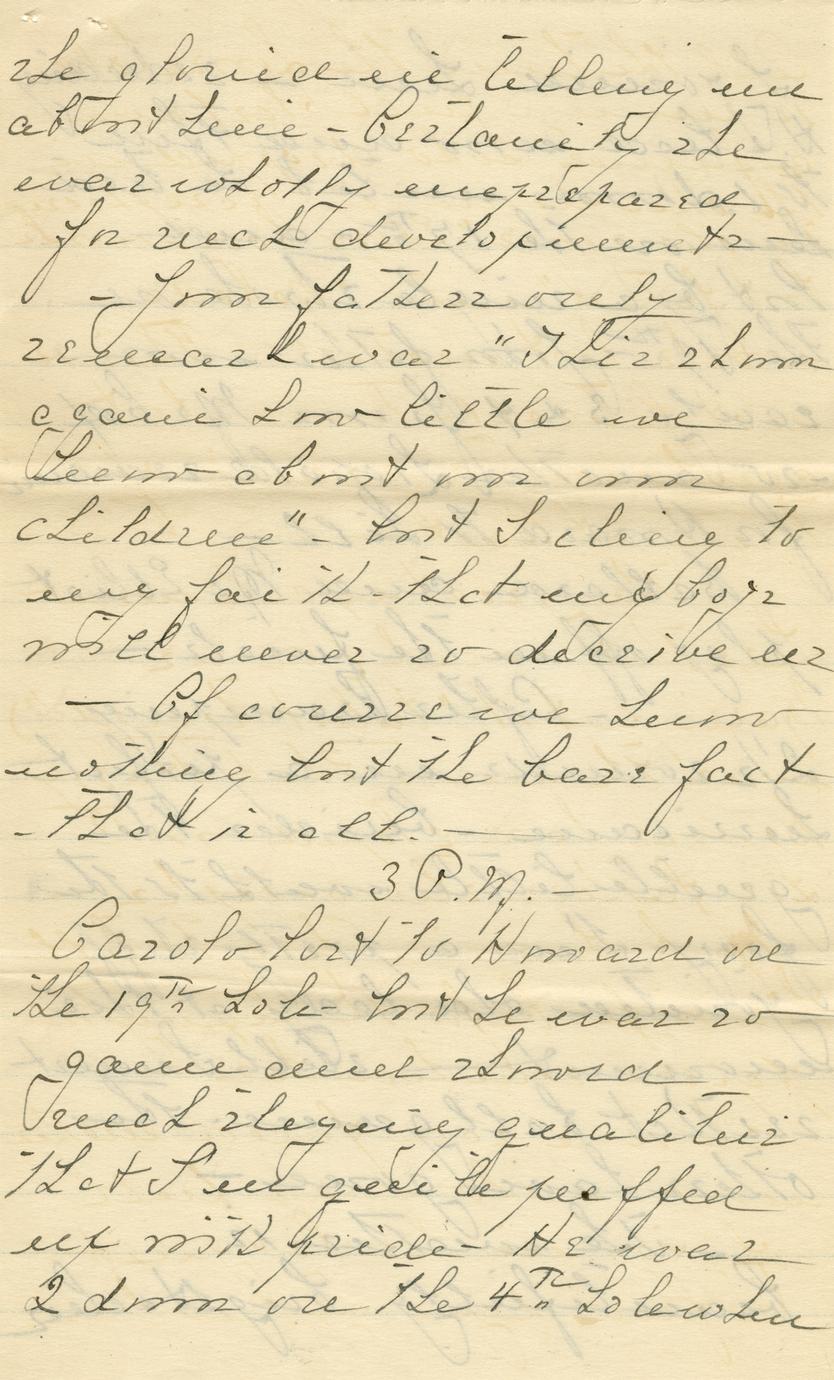 she gloried in telling me
about him - Certainly she
was wholly unprepared
for such developments -
- Your fathers only
remark was "This shows
again how little we
know about our own
children" - but I cling to
my faith - that my boys
will never so deceive us
- Of course we know
nothing but the bare fact
- that is all. -
3 P.M. -
Carolo lost to Howard on
the 19th hole - but he was so
game and showed
such staying qualities
that I'm quite puffed
up with pride - He was
2 down on the 4th hole when